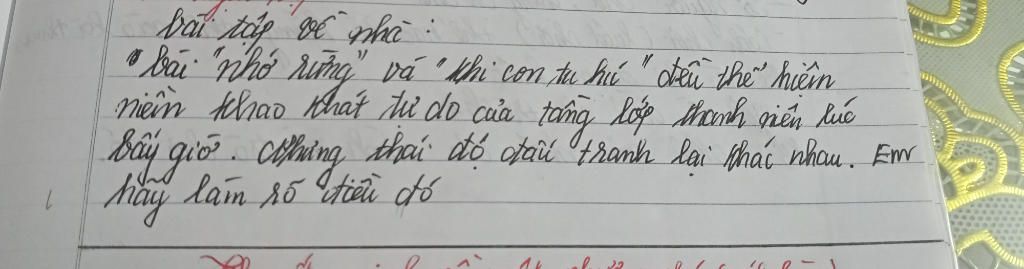 bài tập về nhà:
"bài "nhớ rừng" và "khi con tu hú" đều thể hiện
niềm khao khát tự do của tầng lớp thanh niên lúc
bấy giờ. nhưng thái độ đấu tranh lại khác nhau. Em
hãy làm rõ điều đó